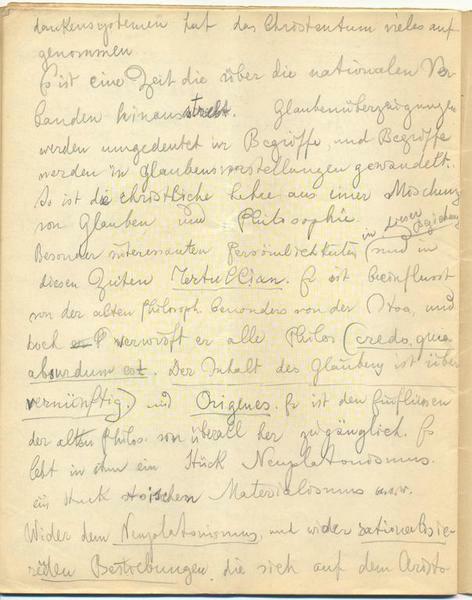 dankensystemen hat das Christentum vieles auf-
genommen
Es ist eine Zeit die über die nationalen Ver-
banden hinausstrebt. Glaubenüberzeugungen
werden umgedeutet in Begriffe, und Begriffe
werden in Glaubensvorstellungen gewandelt.
So ist die christliche Lehre aus einer Mischung
von Glauben und Philosophie.
Besonder interessanten Persönlichkeiten in dieser Beziehung sind in
diesen Zeiten Tertullian. Er ist beeinflusst
von der alten Philosoph. besonders von der Stoa, und
doch verwirft er alle Philos (credo, quia
absurdum est. Der Inhalt des Glaubens ist über
vernünftig.) und Origenes. Er ist den Einflüssen
der alten Philos. von überall her zugänglich. Es
lebt in ihm ein Stück Neuplatonismus.
ein Stück stoischen Materialismus u.s.w.
Wider dem Neuplatonismus, und wider rationalisie-
renden Bestrebungen, die sich auf dem Aristo-